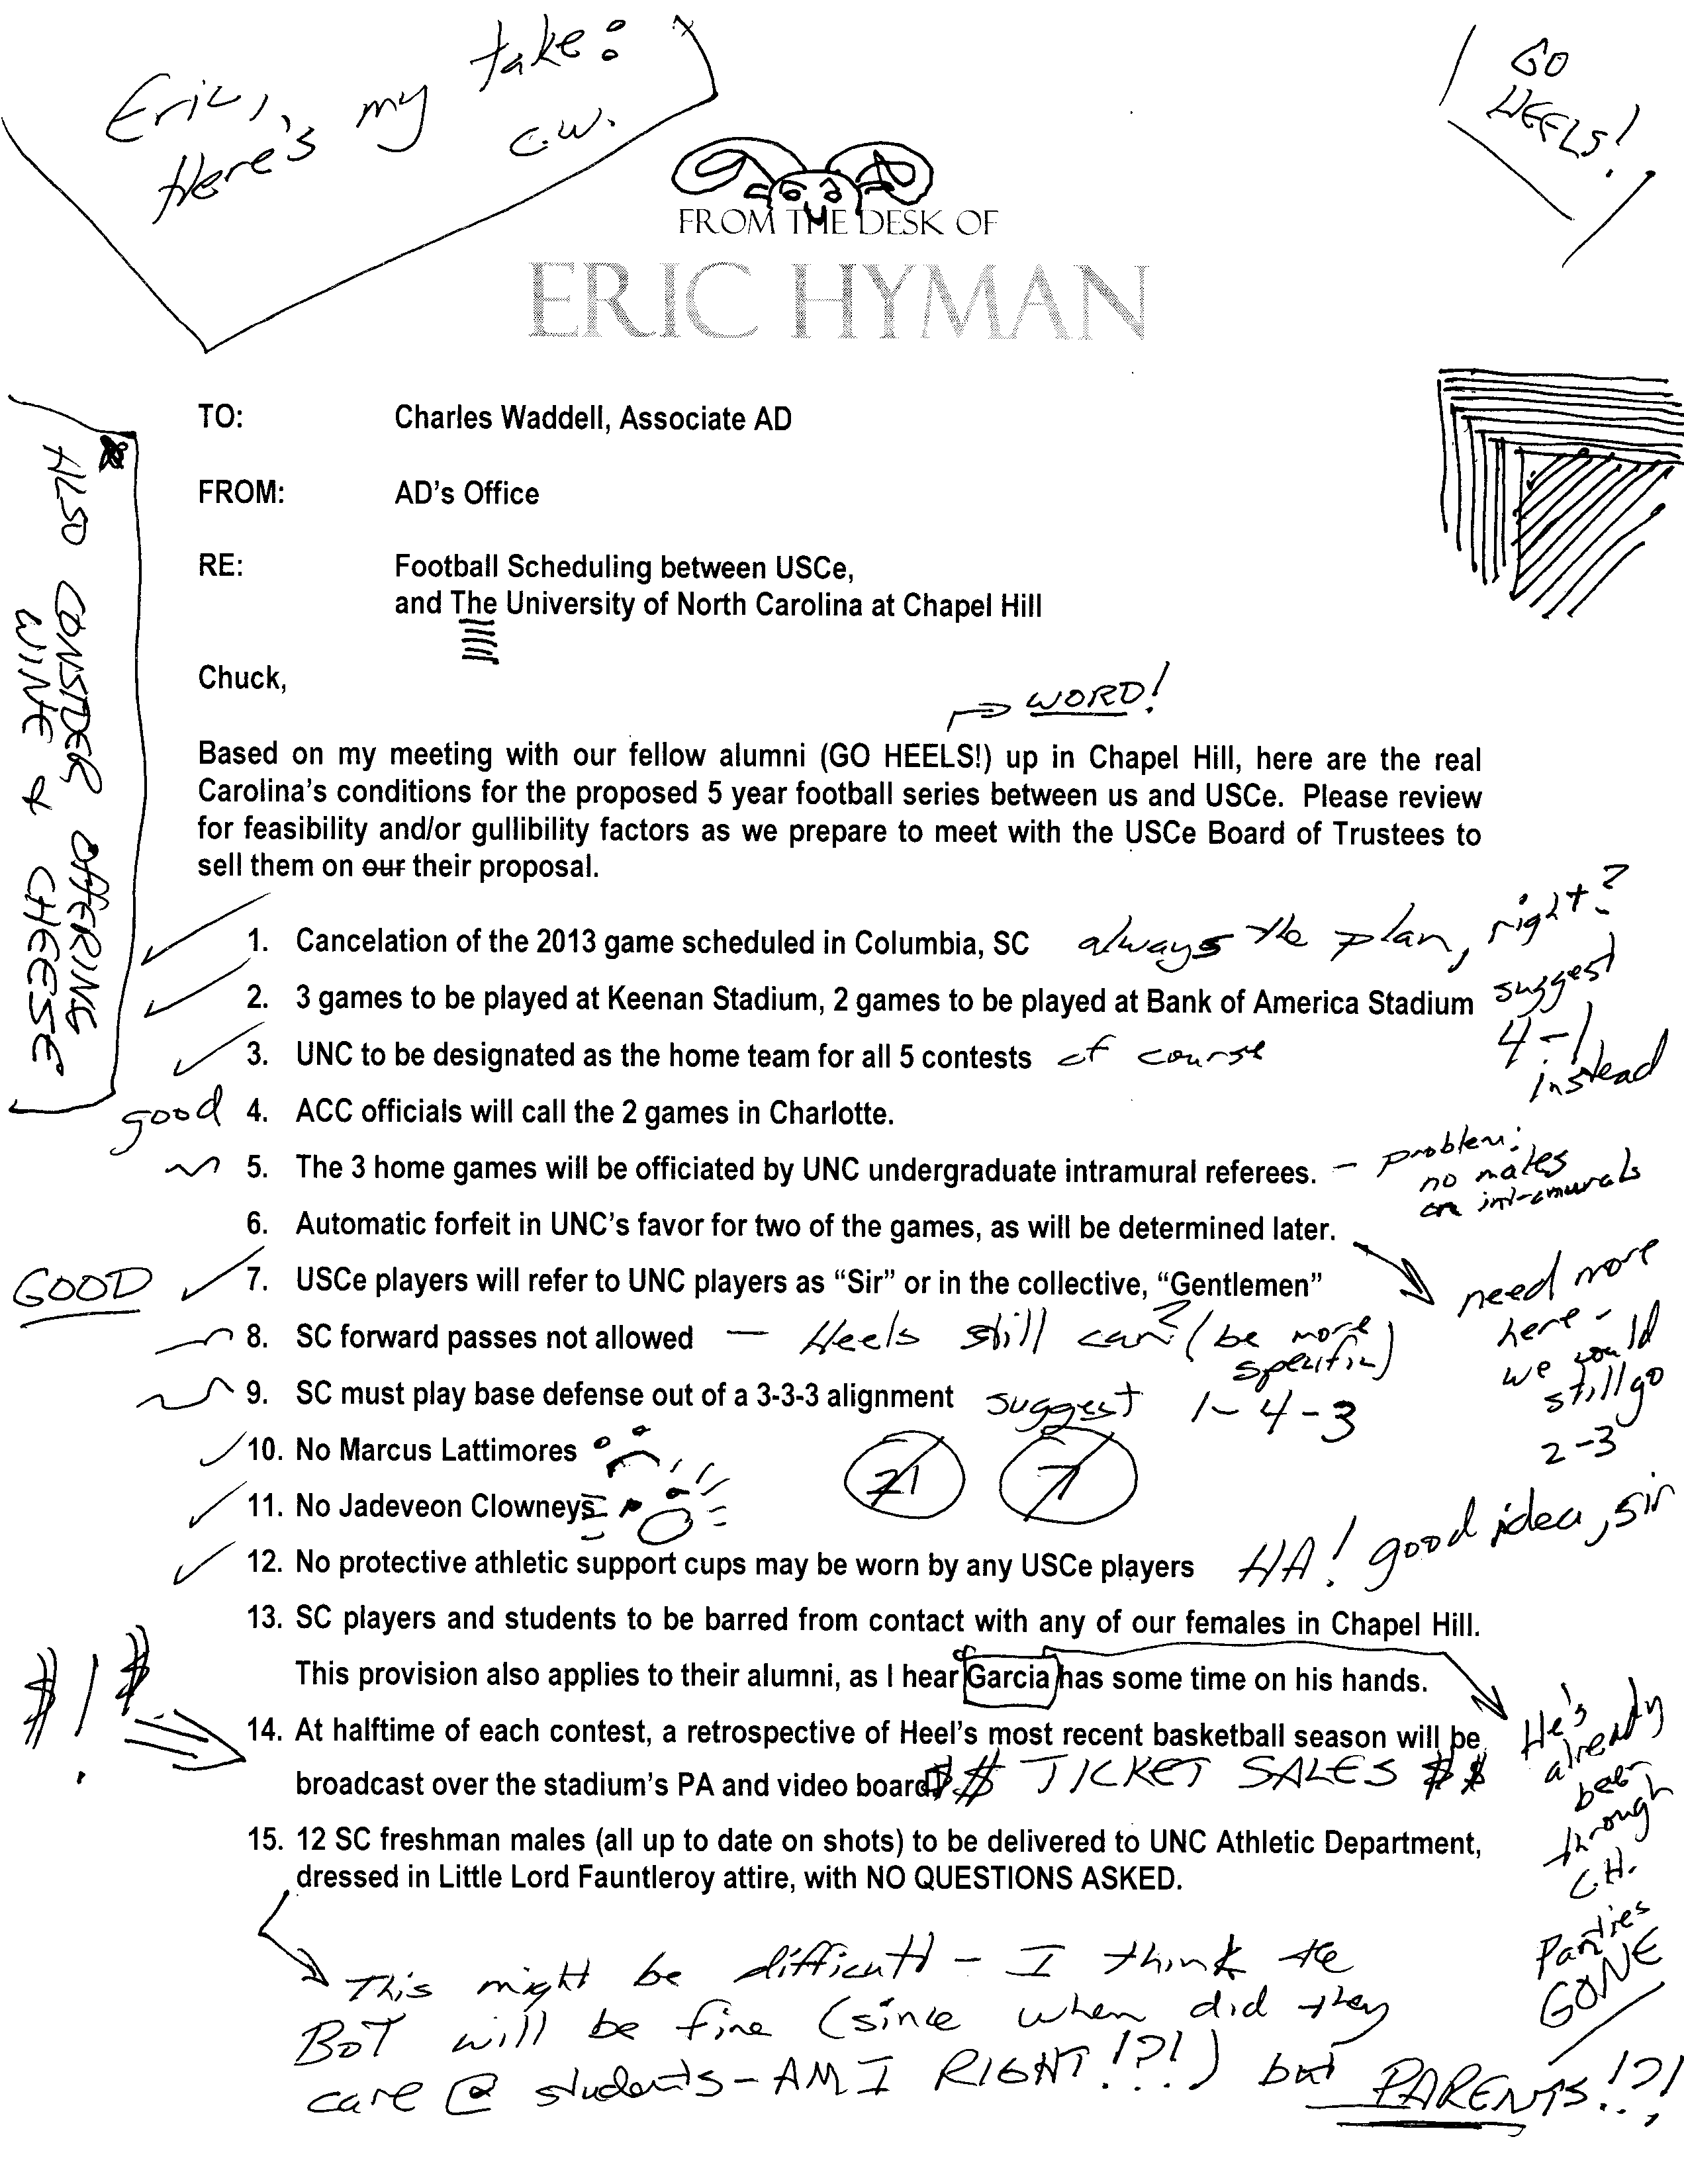 Eric,
Here's my take:
C.W.
GO
HEELS!
FROM THE DESK OF
ERIC HYMAN
TO: Charles Waddell, Associate AD
FROM: AD's Office
RE: Football Scheduling between USCe,
and The University of North Carolina at Chapel Hill
Chuck,
WORD!
Based on my meeting with our fellow alumni (GO HEELS!) up in Chapel Hill, here are the real
Carolina's conditions for the proposed 5 year football series between us and USCe. Please review
for feasibility and/or gullibility factors as we prepare to meet with the USCe Board of Trustees to
sell them on our their proposal.
ALSO CONSIDER OFFERING
WINE & CHEESE
1. Cancelation of the 2013 game scheduled in Columbia, SC always the plan, right?
2. 3 games to be played at Keenan Stadium, 2 games to be played at Bank of America Stadium suggest
4-1
instead
3. UNC to be designated as the home team for all 5 contests of course
good 4. ACC officials will call the 2 games in Charlotte.
5. The 3 home games will be officiated by UNC undergraduate intramural referees. - problem:
no males
on intramurals
6. Automatic forfeit in UNC's favor for two of the games, as will be determined later.
need more
here -
we could
still go
2-3
GOOD 7. USCe players will refer to UNC players as “Sir” or in the collective, “Gentlemen”
8. SC forward passes not allowed — Heels still can? (be more
specific)
9. SC must play base defense out of a 3-3-3 alignment suggest 1-4-3
10. No Marcus Lattimores
21 7
11. No Jadeveon Clowneys
12. No protective athletic support cups may be worn by any USCe players HA! good idea, sir
13. SC players and students to be barred from contact with any of our females in Chapel Hill.
This provision also applies to their alumni, as I hear Garcia has some time on his hands.
He's
already
been
through
C.H.
Panties
GONE
$!$
14. At halftime of each contest, a retrospective of Heel's most recent basketball season will be
broadcast over the stadium's PA and video board. $$ TICKET SALES $$
15. 12 SC freshman males (all up to date on shots) to be delivered to UNC Athletic Department,
dressed in Little Lord Fauntleroy attire, with NO QUESTIONS ASKED.
This might be difficult - I think the
BOT will be fine (since when did they
care @ students - AM I RIGHT!?!) but PARENTS!?!